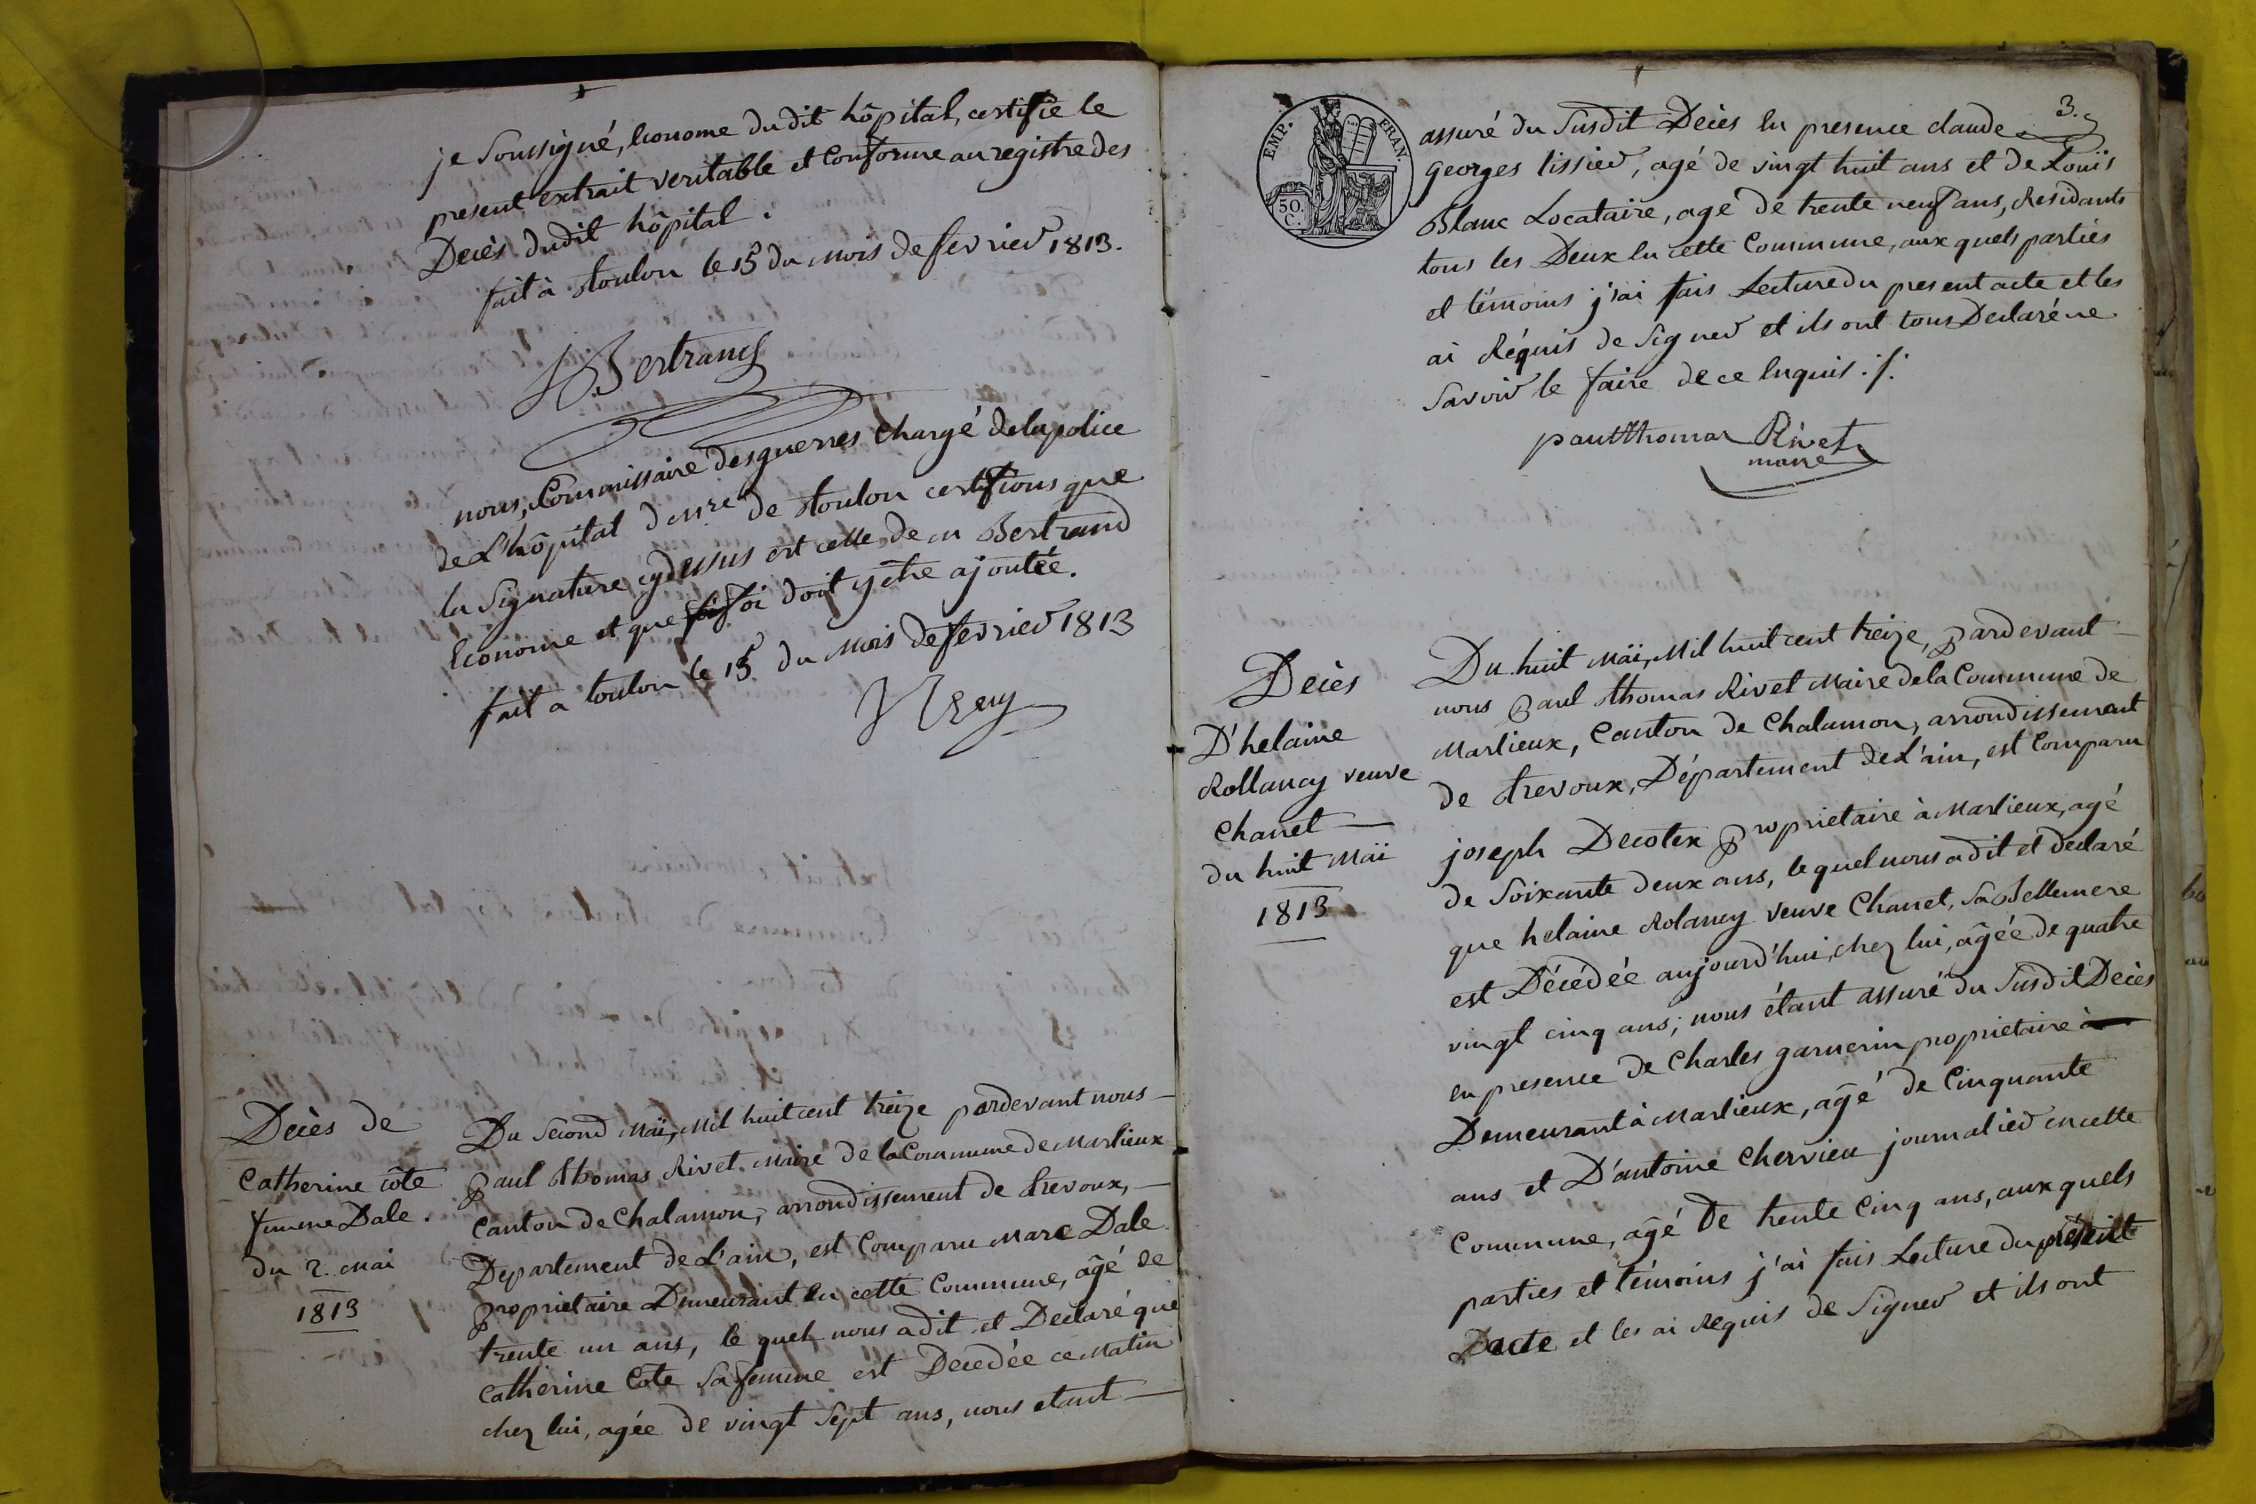 je Soussigné, Econome dudit hôpital, certifie le
present extrait veritable et Conforme au registre des
Decès dudit hôpital.
fait à toulon le 15 du mois de fevrier 1813.
Bertrand
nous, Commissaire des guerres Chargé de la police
de L'hôpital de toulon certifions que
la Signature cydessus est celle de m Bertrand
Econome et que foi doit y être ajoutée.
fait a toulon le 15 du mois de fevrier 1813
Decès de
Catherine côte
femme Dale.
du 2. mai
1813
Du Second Maï, Mil huit cent treize pardevant nous
paul thomas Rivet Maire de la Commune de Marlieux
Canton de Chalamon, arrondissement de trevoux,
Departement de L'ain, est Comparu Marc Dale
proprietaire Demeurant En cette Commune, âgé de
trente un ans, le quel nous a dit et Declaré que
Catherine Côte Sa femme est Decedée ce Matin
chez lui, agée de vingt Sept ans, nous etant
3.
EMP. FRAN.
50 C.
assuré du Susdit Decès En presence claude
georges tissier, agé de vingt huit ans et de Louïs
Blanc Locataire, agé de trente neuf ans, Residants
tous les Deux En cette Commune, aux quels parties
et témoins j'ai fais Lecture du present acte et les
ai Réquis de Signer et ils ont tous Declaré ne
Savoir le faire de ce Enquis ./.
paul thomas Rivet
maire
Decès
D'helaine
Rollancy veuve
Chanet
du huit Maï
1813
Du huit Maï, Mil huit cent treize, pardevant
nous paul thomas Rivet Maire de la Commune de
Marlieux, Canton de Chalamon, arrondissement
de trevoux, Département de L'ain, est Comparu
joseph Decotex proprietaire à Marlieux, agé
de Soixante deux ans, le quel nous a dit et declaré
que helaine Rolancy veuve Chanet, Sa Bellemere
est Décédée aujourd'hui, chez lui, âgée de quatre
vingt cinq ans; nous étant assuré du Susdit Decès
en presence de Charles garnerin proprietaire à
Demeurant à Marlieux, agé de Cinquante
ans et D'antoine Chervieu journalier en cette
Commune, agé De trente Cinq ans, aux quels
parties et témoins j'ai fais Lecture du présent
acte et les ai Requis de Signer et ils ont